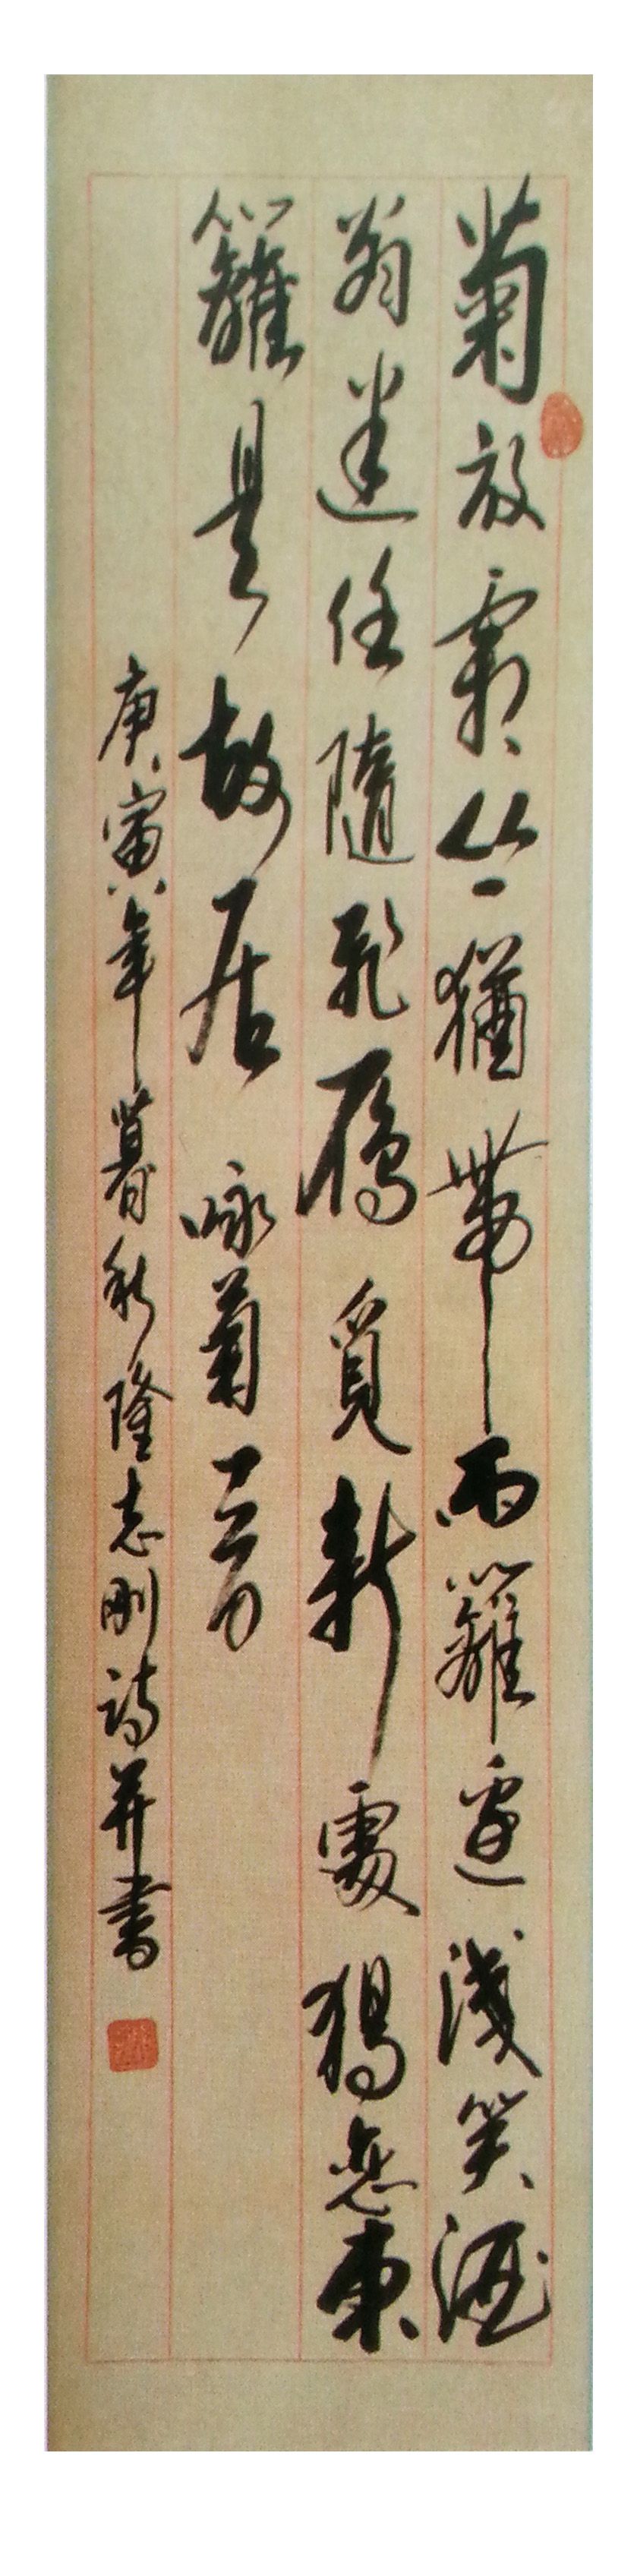 菊放霜丛猶帶雨籬邊淺笑酒
翁迷任隨飛雁覓新處獨恋東
籬是故居 咏菊一首
庚寅年暮秋隆志刚詩并書